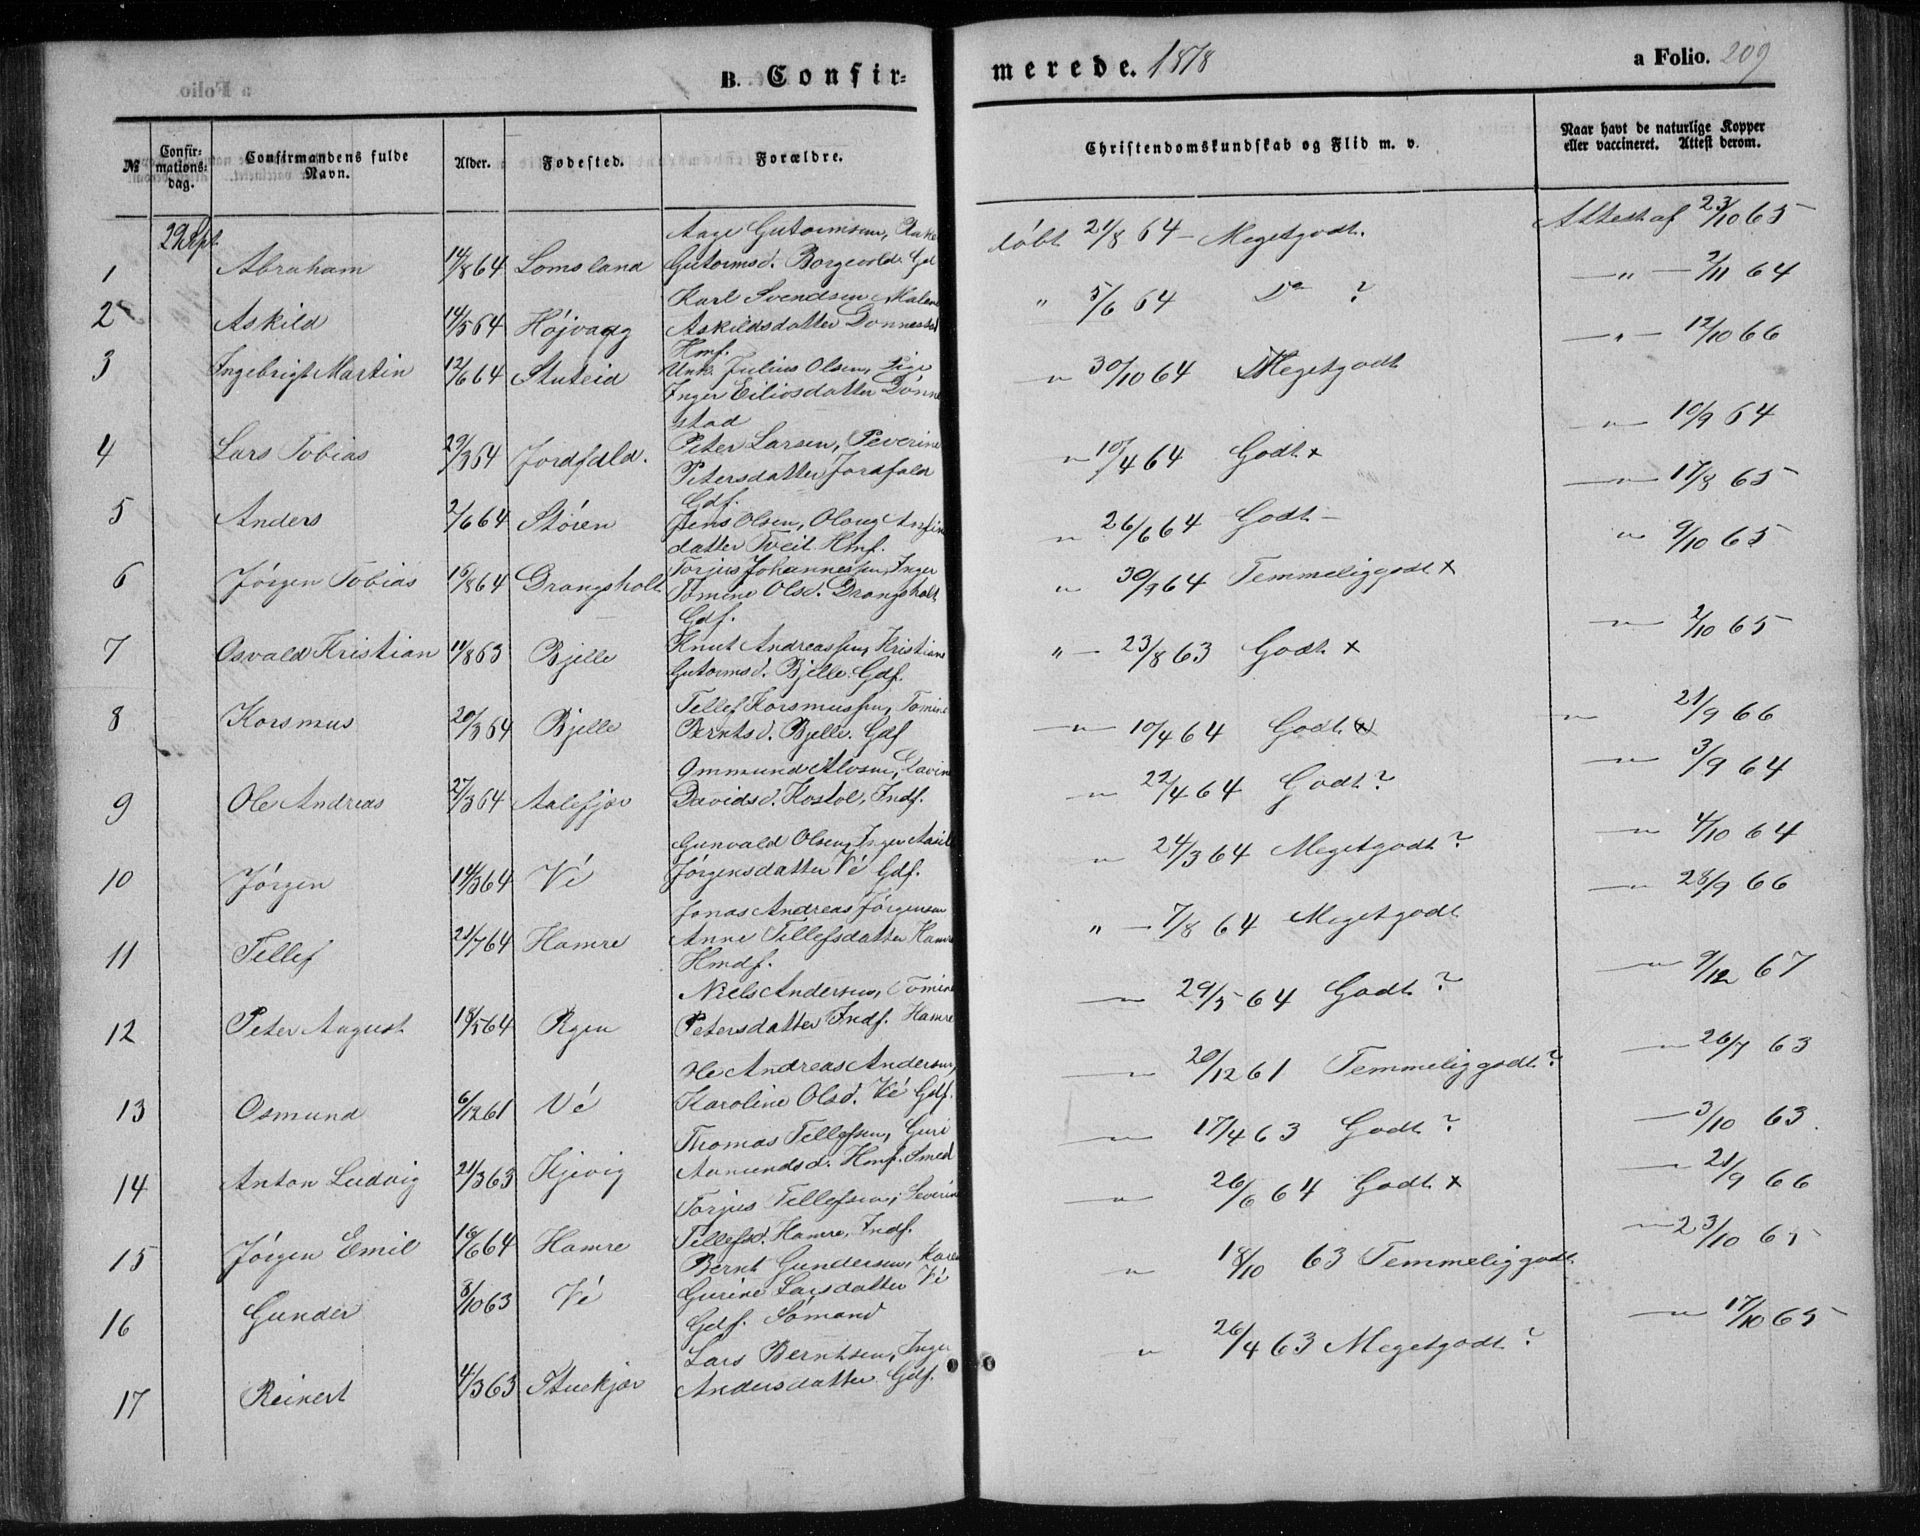 B. Confir=
merede. 1878
a Folio. 209
№
Confir-
mations-
dag.
Confirmandens fulde
Navn.
Alder.
Fødested.
Forældre.
Christendomskundskab og Flid m. v.
Naar havt de naturlige Kopper
eller vaccineret. Attest derom.
29 Sept
1 Abraham 14/8 64 Lomsland
Aage Gutormsen,
Gutormsd. Borgevold. Gd
døbt 21/8 64 – Megetgodt.
Attest af 23/10 65
2 Askild 14/5 64 Højvaag
Karl Svendsen Malene
Askildsdatter Dønnestad
Hmf.
" 5/6 64 Do ?
— " — 2/11 64
3 Ingebrigt Martin 12/6 64 Stuteid
Unk. Julius Olsen, Pige
Inger Eiliosdatter Dønne
stad
" 30/10 64 Megetgodt
— " — 12/10 66
4 Lars Tobias 29/3 64 Jordfald.
Peter Larsen, Peverine
Petersdatter Jordfald
Gdf.
" 10/4 64 Godt x
— " — 10/9 64
5 Anders 2/6 64 Støren
Jens Olsen, Oloug Anfin
datter Tveit Hmf.
" 26/6 64 Godt –
— " — 17/8 65
6 Jørgen Tobias 16/8 64 Drangsholt
Torjus Johannessen, Inger
Tomine Olsd. Drangsholt
Gdf.
" 30/9 64 Temmeliggodt x
" 9/10 65
7 Osvald Kristian 11/8 63 Bjelle
Knut Andreassen, Kristiane
Gutormsd. Bjelle. Gdf.
" — 23/8 63 Godt x
— " — 2/10 65
8 Korsmus 20/3 64 Bjelle
Tellef Korsmussen, Tomine
Berntsd. Bjelle. Gdf
— " — 10/4 64 Godt x
" 21/9 66
9 Ole Andreas 27/3 64 Aalefjær
Ommund Alvsen, Davine
Davidsd. Kostøl, Indf.
— " — 22/4 64 Godt ?
— " — 3/9 64
10 Jørgen 14/3 64 Vé
Gunvald Olsen, Inger Aasild
Jørgensdatter Vé Gdf.
" 24/3 64 Megetgodt ?
— " — 4/10 64
11 Tellef 21/7 64 Hamre
Jonas Andreas Jørgensen
Anne Tellefsdatter Hamre
Hmdf.
" — 7/8 64 Megetgodt
— " — 28/9 66
12 Peter August 18/5 64 Rgen
Niels Andersen, Tomine
Petersdatter Indf. Hamre
— " — 29/5 64 Godt ?
— " — 9/12 67
13 Osmund 6/12 61 Vé
Ole Andreas Andersen,
Karoline Olsd. Vé Gdf.
— " — 20/12 61 Temmeliggodt ?
— " — 26/7 63
14 Anton Ludvig 21/3 63 Kjevig
Thomas Tellefsen, Guri
Aamundsd. Hmf. Smed
— " — 17/4 63 Godt ?
— " — 3/10 63
15 Jørgen Emil 16/6 64 Hamre
Torjus Tellefsen, Severine
Tellefsd. Hamre, Indf.
" 26/6 64 Godt x
— " — 21/9 66
16 Gunder 8/10 63 Vé
Bernt Gundersen, Karen
Gurine Larsdatter Vé
Gdf. Sømand
" 18/10 63 Temmeliggodt
— " 23/10 65
17 Reinert 4/3 63 Stuekjær
Lars Berntsen, Inger
Andersdatter Gdf.
" 26/4 63 Megetgodt ?
— " — 17/10 65